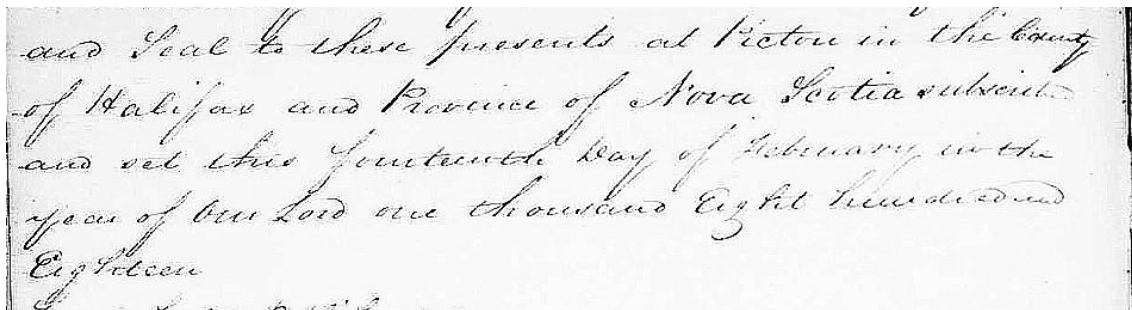 and Seal to these presents at Pictou in the County
of Halifax and Province of Nova Scotia subscribed
and set this fourteenth Day of February in the
year of Our Lord one thousand Eight hundred and
Eighteen